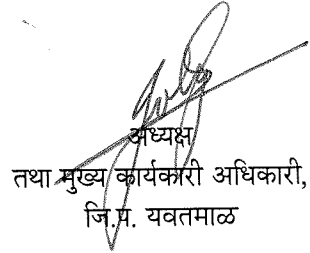 अध्यक्ष
तथा मुख्य कार्यकारी अधिकारी,
जि.प. यवतमाळ